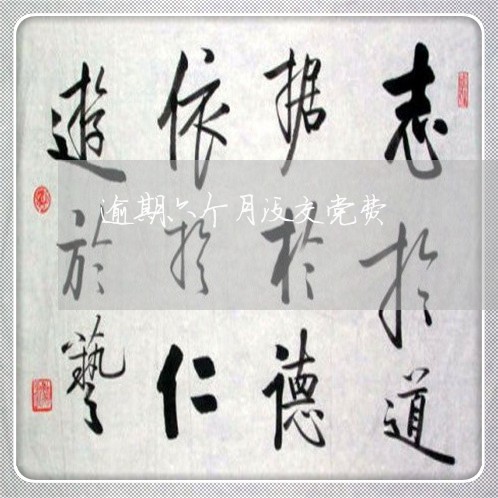 志於道
据於德
依於仁
遊於藝
逾期六个月没交党费